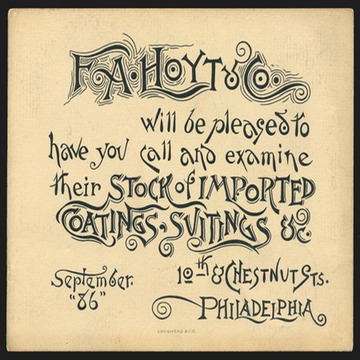 F.A. HOYT & CO.
will be pleased to
have you call and examine
their STOCK of IMPORTED
COATINGS, SUITINGS &C.
September 10th & CHESTNUT STS.
"86" PHILADELPHIA